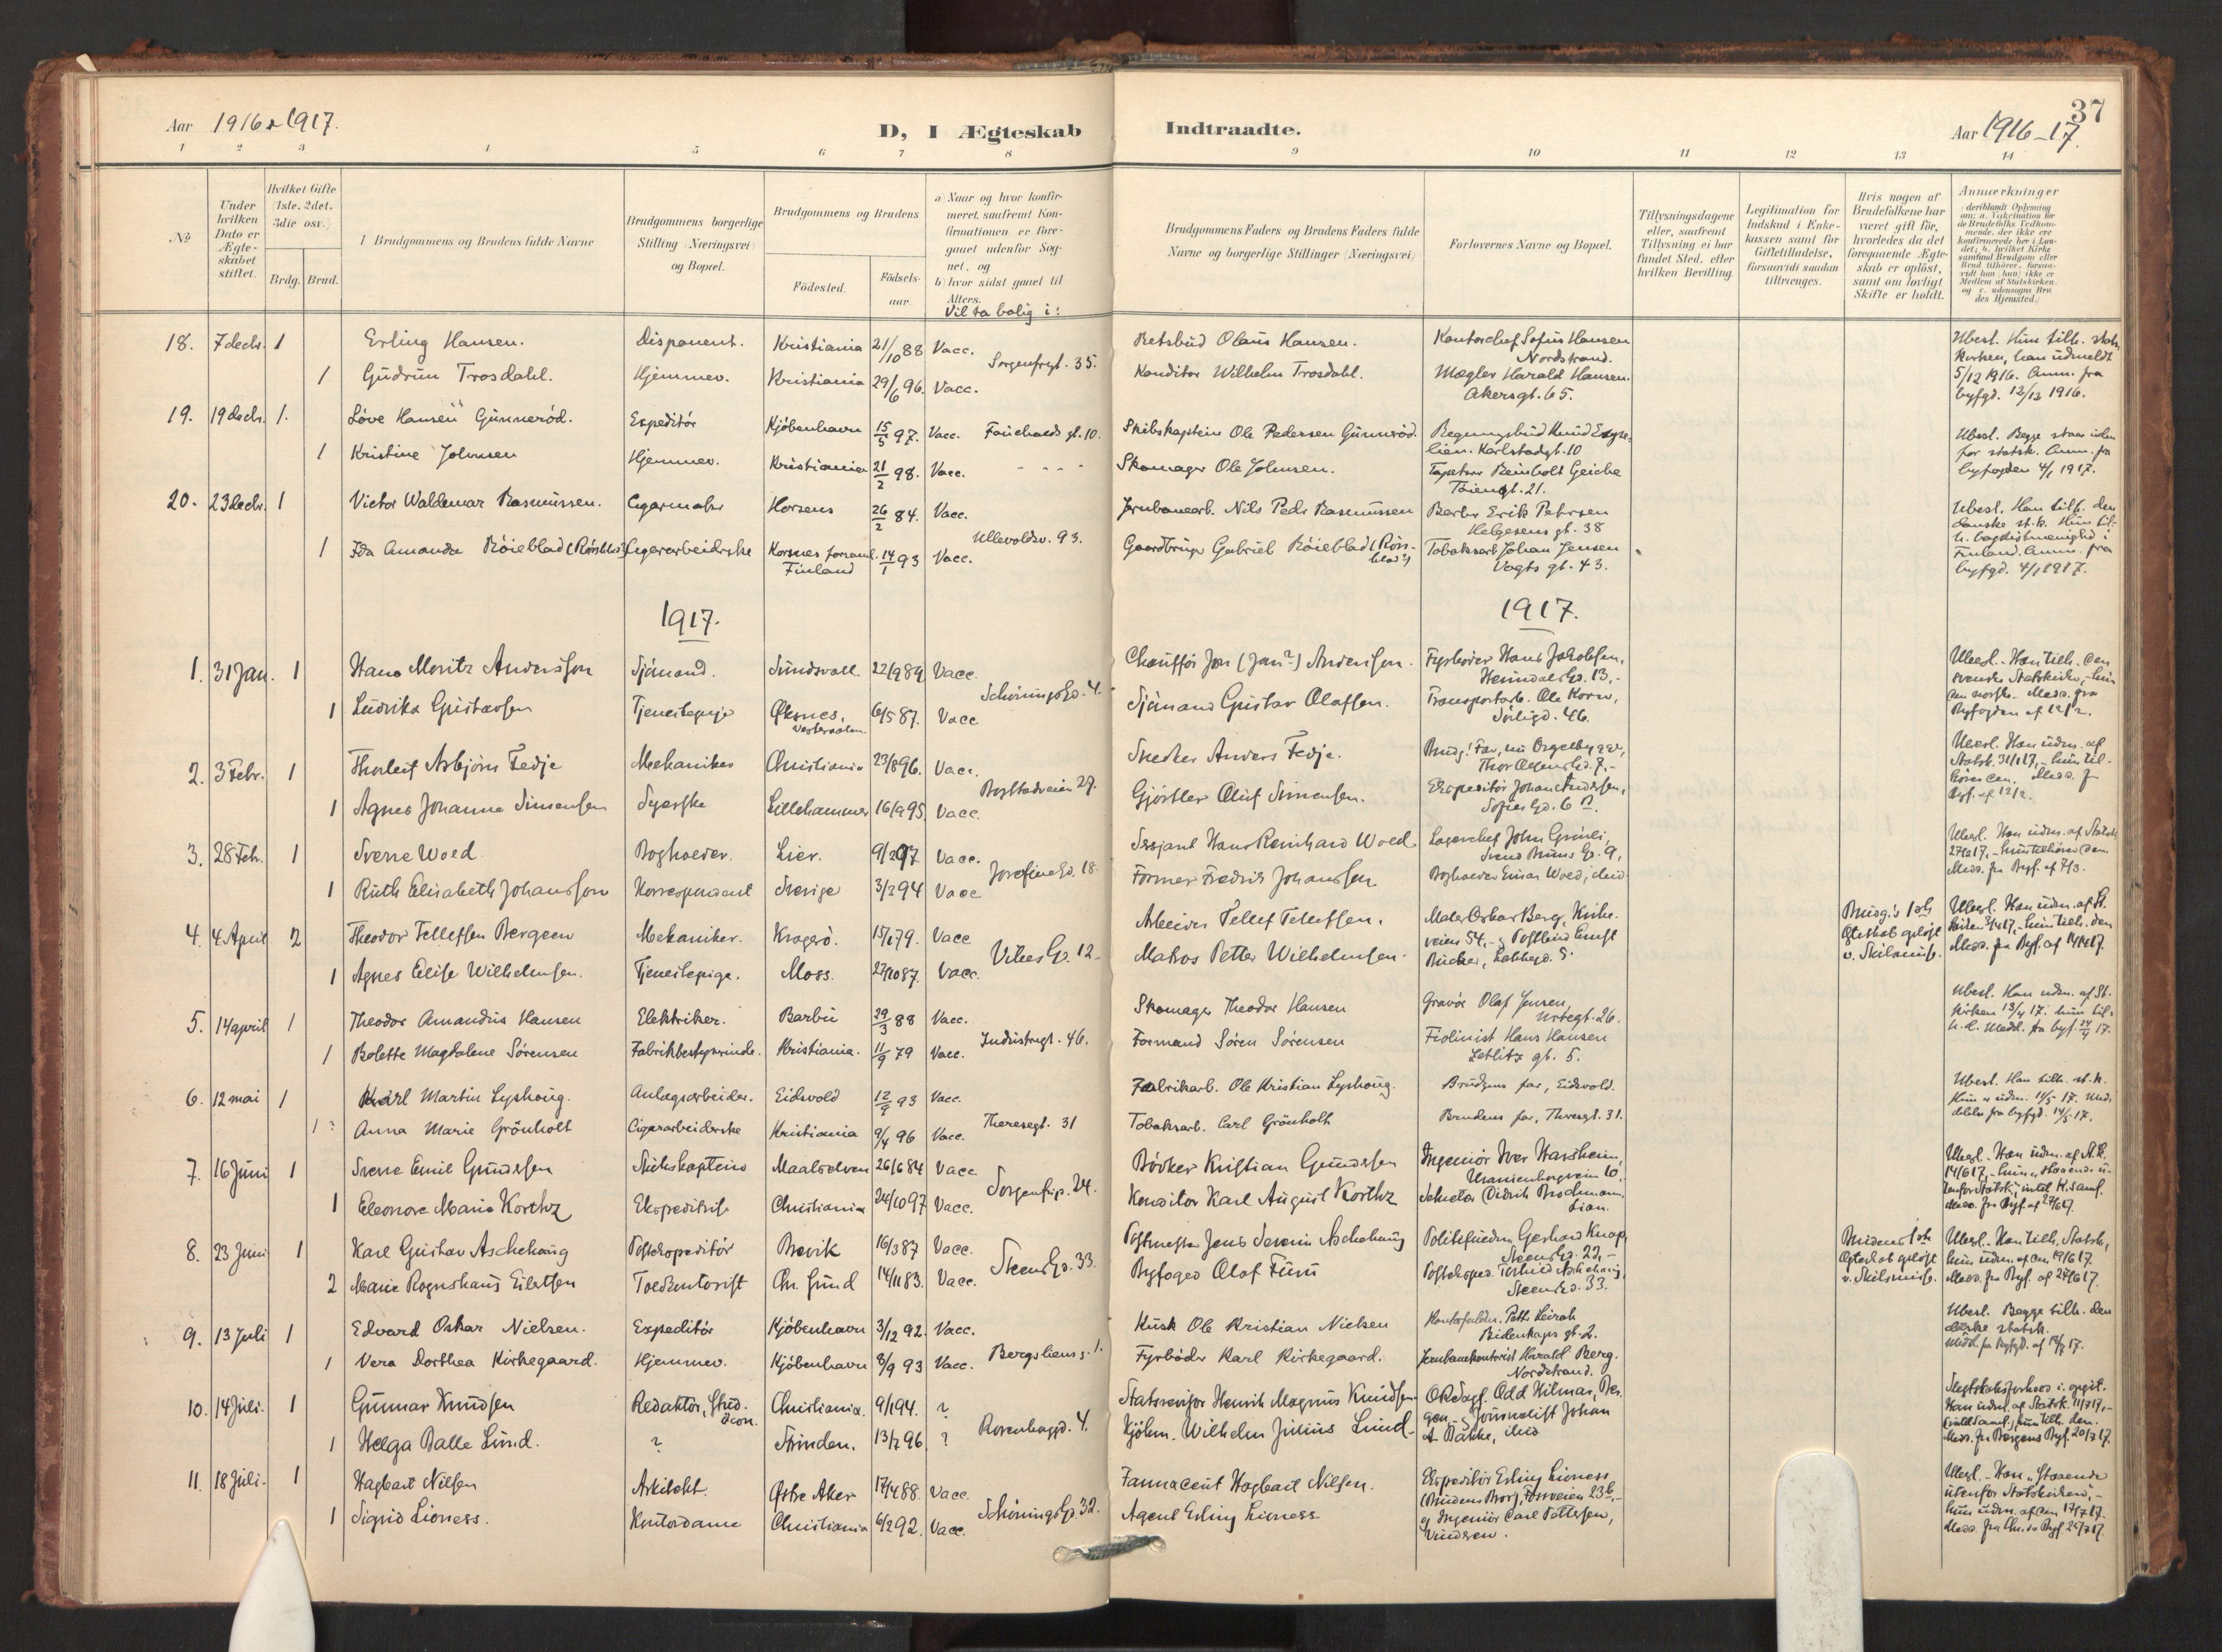 Aar 1916 & 1917.
D, I Ægteskab Indtraadte.
Aar 1916-17.
37
1 2 3 4 5 6 7 8 9 10 11 12 13 14
No
Under hvilken Dato er Ægteskabet stiftet.
Hvilket Gifte (1ste, 2det, 3die osv.)
Brdg. Brud.
Brudgommens og Brudens fulde Navne
Brudgommens borgerlige Stilling (Næringsvei) og Bopæl.
Brudgommens og Brudens
Födested. Födselsaar.
a) Naar og hvor konfirmeret, saafremt Konfirmationen er foregaaet udenfor Sognet, og
b) hvor sidst gaaet til Alters.
Vil ta bolig i:
Brudgommens Faders og Brudens Faders fulde Navne og borgerlige Stillinger (Næringsvei)
Forlovernes Navne og Bopæl.
Tillysningsdagene eller, saafremt Tillysning ei har fundet Sted, efter hvilken Bevilling.
Legitimation for Indskud i Enkekassen samt for Giftetilladelse, forsaavidt saadan tiltrænges.
Hvis nogen af Brudefolkene har været gift för, hvorledes da det foregaaende Ægteskab er oplöst, samt om lovligt Skifte er holdt.
Anmærkninger
18. 7 decbr. 1 Erling Hansen. Disponent. Kristiania 21/10 88 Vacc. Sorgenfrigt. 35. Retsbud Olaus Hansen. Kontorchef Sofus Hansen Nordstrand. Ubesl. Hun tilh. statskirken, han udmeldt 5/12 1916. Anm. fra byfgd. 12/12 1916.
1 Gudrun Trosdahl. Hjemmev. Kristiania 29/6 96. Vacc. Konditor Wilhelm Trosdahl. Mægler Harald Hansen. Akersgt. 65.
19. 19 decbr. 1. Löve Hansen Gunneröd. Expeditör Kjöbenhavn 15/5 97. Vacc. Fauchalds gt. 10. Skibskaptein Ole Pedersen Gunneröd. Karlstadgt. 10 Ubesl. Begge staar uden for statsk. Anm. fra byfogden 4/1 1917.
1 Kristine Johnsen Hjemmev. Kristiania 21/2 98. Vacc. - - - - Skomager Ole Johnsen. Tapetserer Reinholt Geiche Töiengt. 21.
20. 23 decbr. 1 Victor Waldemar Rasmussen. Cigarmaker Horsens 26/2 84. Vacc. Ullevoldsv. 93. Jernbanearb. Nils Peder Rasmussen Barber Erik Petersen Helgesens gt. 38 Ubesl. Han tilh. den danske st.k. Hun tilh. baptistmenighed i Finland. Anm. fra byfgd. 4/1 1917.
1 Ida Amanda Röieblad (Rörsblad?) Cigararbeiderske Korsnes forsaml. Finland 14/1 93 Vacc. Gaardbruger Gabriel Röieblad (Rörsblad?) Tobaksarb. Johan Jensen Vogts gt. 43.
1917. 1917.
1. 31 Jan. 1 Hans Moritz Andersson Sjömand. Sundsvall 22/9 89 Vacc. Schönings Gd. 4. Chaufför Jon (Jan?) Andersson. Fyrböder Hans Jakobsen, Heimdals Gd. 13,- Ubesl. - Han tilh. den svenske Statskirke, - hun den norske. - Medd. fra Byfogden af 12/2.
1 Ludvika Gustavsen Tjenestepige Öksnes, Vesteraalen 6/5 87. Vacc Sjömand Gustav Olaffsen. Transportarb. Ole Korn, Sörligd. 46.
2. 3 Febr. 1 Thorleif Asbjörn Fedje Mekaniker Christiania 23/8 96. Vacc. Bogstadveien 27. Snedker Anders Fedje. Brudg.s Far, nu Orgelbygger, Thor Olsens Gd. 7,- Ubesl. Han udm. af Statsk. 31/1 17, - hun tilhörer den. Medd. fr. Byf. af 12/2.
1 Agnes Johanne Simensen Syerske Lillehammer 16/9 95 Vacc. Gjörtler Oluf Simensen. Ekspeditör Johan Andersen, Sofies Gd. 6
3. 28 Feb. 1 Sverre Woed. Bogholder. Lier. 9/2 97 Vacc. Josefine Gd. 18 Sersjant Hans Reinhard Woed. Lagerchef John Grimli, Svend Bruns Gd. 9, Ubesl. Han udm. af Statsk. 27/2 17, - hun tilhörer den. Medd. fra Byf. af 7/3.
1 Ruth Elisabeth Johansson Korrespondent Sverige 3/3 94 Vacc Former Fredrik Johansson Bogholder Einar Woed, ibid
4. 4 April 2 Theodor Tellefsen Bergeen Mekaniker. Kragerö. 15/1 79. Vacc Vibes Gd. 12 Arbeider Tellef Tellefsen. Maler Oskar Berg, Kirkeveien 54,- og Postbud Ernst Brudg.s 1ste Ægteskab oplöst v. Skilsmisse. Ubesl. Han udm. af St. Kirken 3/4 17, - hun tilh. den Medd. fra Byf. af 14/4 17.
1 Agnes Elise Wilhelmsen. Tjenestepige. Moss. 27/10 87. Vacc. Matros Petter Wilhelmsen.
5. 14 april 1 Theodor Amandus Hansen Elektriker. Barbu 29/3 88 Vacc. Industrigt. 46. Skomager Theodor Hansen Gravör Olaf Jensen, Urtegt. 26. Ubesl. Han udm. af St. kirken 13/4 17. Hun tilh. d. Medd. fra byf. 24/4 17.
1 Bolette Magdalene Sörensen Fabrikbestyrerinde. Kristiania. 11/9 79 Vacc. Formand Sören Sörensen Fiolinist Hans Hansen Zetlitz gt. 5.
6. 12 mai 1 Karl Martin Lyshoug. Anlægsarbeider. Eidsvold 12/9 93 Vacc. Theresegt. 31 Fabrikarb. Ole Kristian Lyshoug. Brudgens far, Eidsvold. Ubesl. Han tilh. st.k. Hun er udm. 11/5 17. Meddelelse fra byfgd. 14/5 17.
1? Anna Marie Grönholt Cigararbeiderske Kristiania 9/4 96 Vacc. Tobaksarb. Carl Grönholt Brudens far, Theresgt. 31.
7. 16 Juni 1 Sverre Emil Gundersen Skibskaptein Maalselven 26/6 84 Vacc Sorgenfrigt. 24. Bödker Kristian Gundersen Ingeniör Iver Hansheim, Uranienborgvein 10, Ubesl. - Han udm. af St.K. 14/6 17, - hun "staaende udenfor Statsk.", intet K.samf. Medd. fra Byf. af 27/6 17.
1 Eleonore Marie Korthz Ekspeditrise Christiania 24/10 97 Vacc. Konditor Karl August Korthz Didrik Brochmann, Lian.
8. 23 Juni 1 Karl Gustav Aschehoug Postekspeditör Brevik 16/3 87 Vacc. Steens Gd. 33. Postmester Jens Severin Aschehoug Politifuldm. Gerhard Knap, Steens Gd. 22,- Brudens 1ste Ægteskab oplöst v. Skilsmisse. Ubesl. - Han tilh. Statsk., hun udm. af den 19/6 17. Medd. fra Byf. af 27/6 17.
2 Marie Rognshaug Eilertsen Toldkontorist Chr. Sund 14/11 83. Vacc. Byfoged Olaf Furu Postekspd. Aschehoug, Steens Gd. 33.
9. 13 Juli 1 Edvard Oskar Nielsen. Expeditör Kjöbenhavn 3/12 92. Vacc. Bergslien s. 1. Kusk Ole Kristian Nielsen Kontorfuldm. Bidenkaps gt. 2. Ubesl. Begge tilh. den danske statsk. Medd. fra byfgd. af 14/7 17.
1 Vera Dorthea Kirkegaard. Hjemmev. Kjöbenhavn 8/9 93 Vacc. Fyrböder Karl Kirkegaard. Jernbanekontorist Harald Berg. Nordstrand.
10. 14 Juli. 1 Gunnar Knudsen Redaktör, Stud. öcon. Christiania. 9/1 94. ? Rosenborggd. 4. Statsrevisor Henrik Magnus Knudsen O.R.Sagf. Odd Hilmar, Bergen - og Journalist Johan A. Bakke, ibid Slægtskabsforhold i. opgit. Han udm. af Statsk. 11/7 17, - hun tilh. den. Medd. fra Bergens Byf. 20/7 17.
1 Helga Balle Lund. ? Strinden. 13/7 96 ? Kjöbm. Wilhelm Julius Lund
11. 18 Juli. 1 Hagbart Nilsen Arkitekt. Östre Aker 17/4 88. Vacc. Schönings Gd. 32. Hagbart Nilsen. Ekspeditör Erling Lioness (Brudens Bror), Fossveien 23b,- og Ingeniör Carl Pettersen, Vinderen. Ubesl. - Han "staaende utenfor Statskirken", - hun udm. af den 17/7 17. Medd. fra Chr.ia Byf. 25/7 17.
1 Sigrid Lioness. Kontordame Christiania 6/2 92. Vacc. Agent Erling Lioness